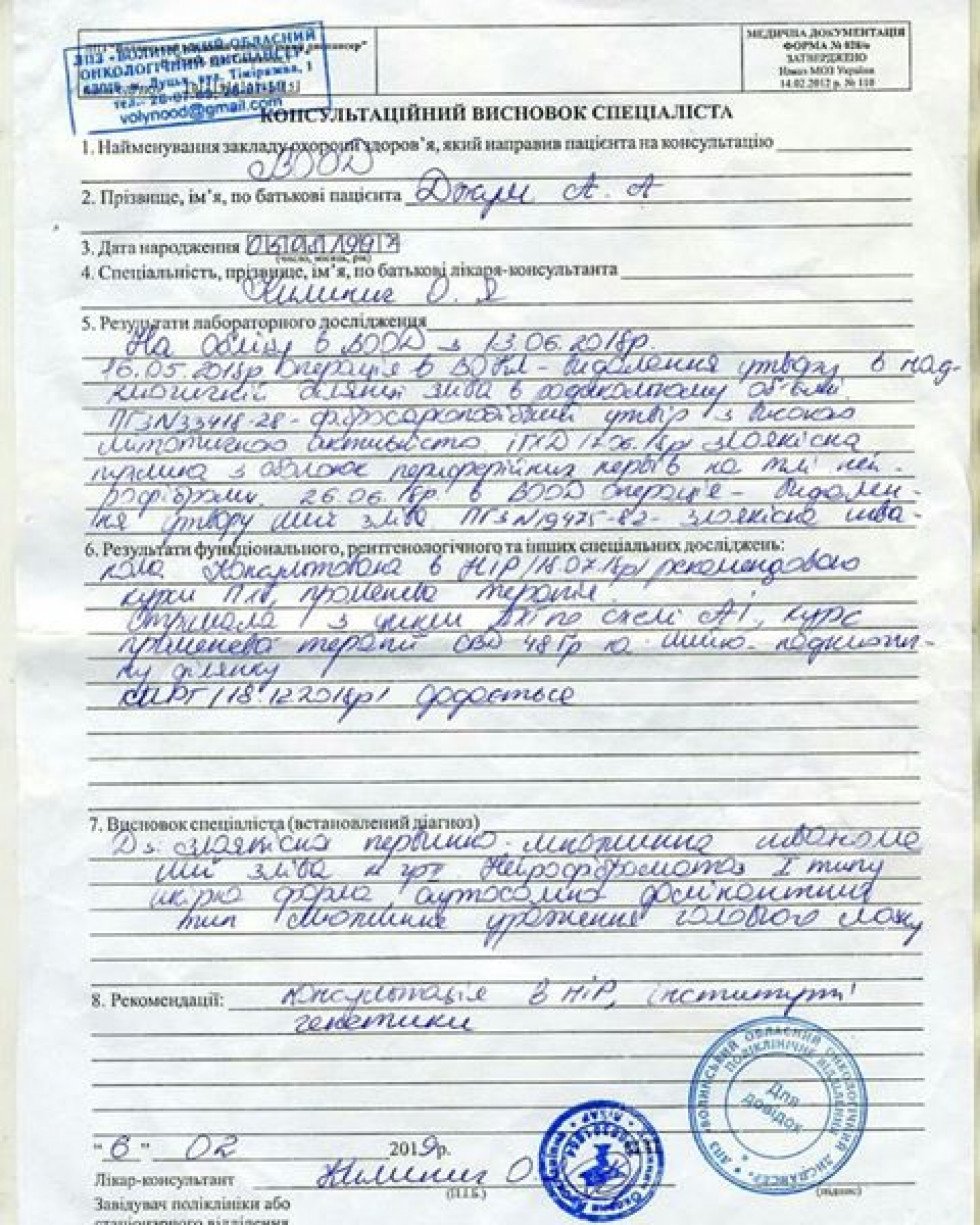 ЛПЗ "ВОЛИНСЬКИЙ ОБЛАСНИЙ
ОНКОЛОГІЧНИЙ ДИСПАНСЕР"
м. Луцьк, вул. Тімірязєва, 1
volynood@gmail.com
МЕДИЧНА ДОКУМЕНТАЦІЯ
ФОРМА № 028/о
ЗАТВЕРДЖЕНО
Наказ МОЗ України
14.02.2012 р. № 110
КОНСУЛЬТАЦІЙНИЙ ВИСНОВОК СПЕЦІАЛІСТА
1. Найменування закладу охорони здоров'я, який направив пацієнта на консультацію
ВООД
2. Прізвище, ім'я, по батькові пацієнта А. А
3. Дата народження
(число, місяць, рік)
4. Спеціальність, прізвище, ім'я, по батькові лікаря-консультанта
О. Я
5. Результати лабораторного дослідження
На обліку в ВООД з 13.06.2018р.
16.05.2018р операція в - видалення утвору в над-
ключичній ділянці зліва в радикальному об'ємі.
ПГЗ N33418-28 - утвір з високою
мітотичною активністю ІГХД 17.06.18р злоякісна
пухлина з оболонок периферійних нервів на тлі ней-
рофіброми. 26.06.18р. в ВООД операція - видален-
ня утвору шиї зліва ПГЗ N19475-82- злоякісна шва-
6. Результати функціонального, рентгенологічного та інших спеціальних досліджень:
нома Консультована в НІР /18.07.18р/ рекомендовано
курси ПХТ, променева терапія.
Отримала 3 цикли ПХТ по схемі АІ, курс
променевої терапії СВД 48Гр на шийно-надключич-
ну ділянку
/18.12.2018р/ додається
7. Висновок спеціаліста (встановлений діагноз)
Дз: злоякісна первинно-множинна шванома
шиї зліва Нейрофіброматоз I типу
шкірна форма аутосомно домінантний
тип ураження головного мозку
8. Рекомендації: Консультація в НІР, інституті
генетики
"6" 02 2019р.
Лікар-консультант О.
(П.І.Б.) (підпис)
Завідувач поліклініки або
стаціонарного відділення
ЛПЗ ВОЛИНСЬКИЙ ОБЛАСНИЙ ОНКОЛОГІЧНИЙ ДИСПАНСЕР
ПОЛІКЛІНІЧНЕ ВІДДІЛЕННЯ
Для
довідок